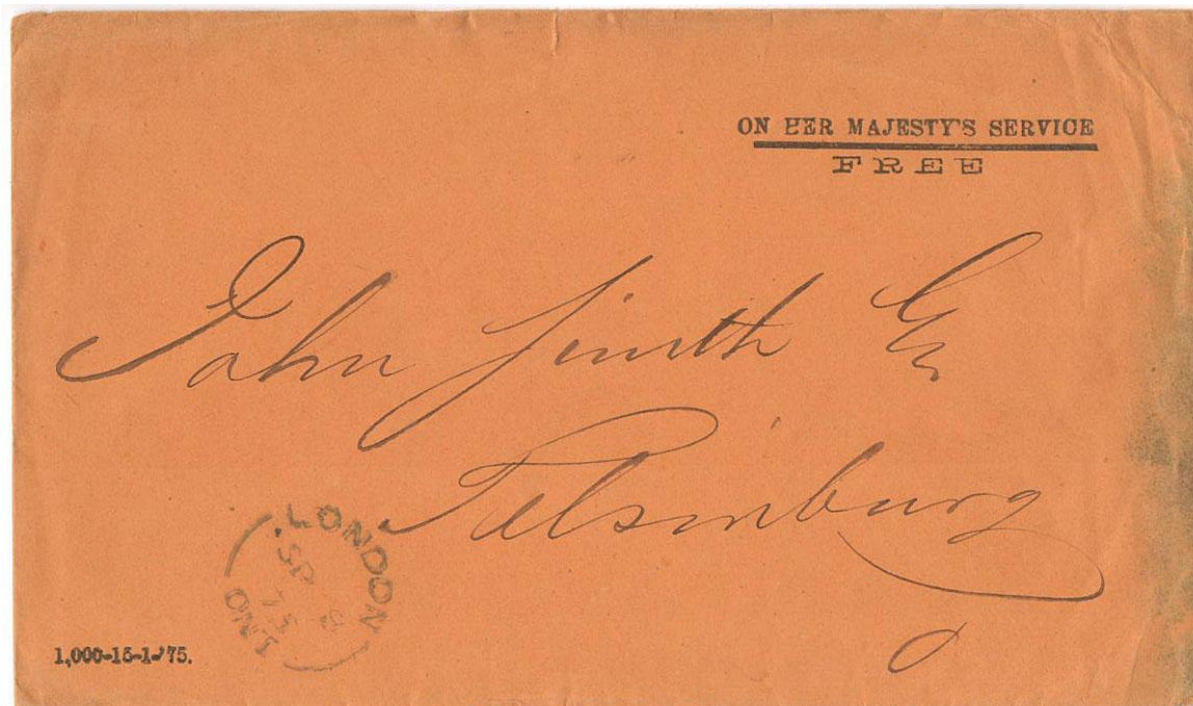 ON HER MAJESTY'S SERVICE
FREE
John Smith Esq
Telsinburg
O
LONDON
SP 8
75
ONT
1,000-15-1-'75.